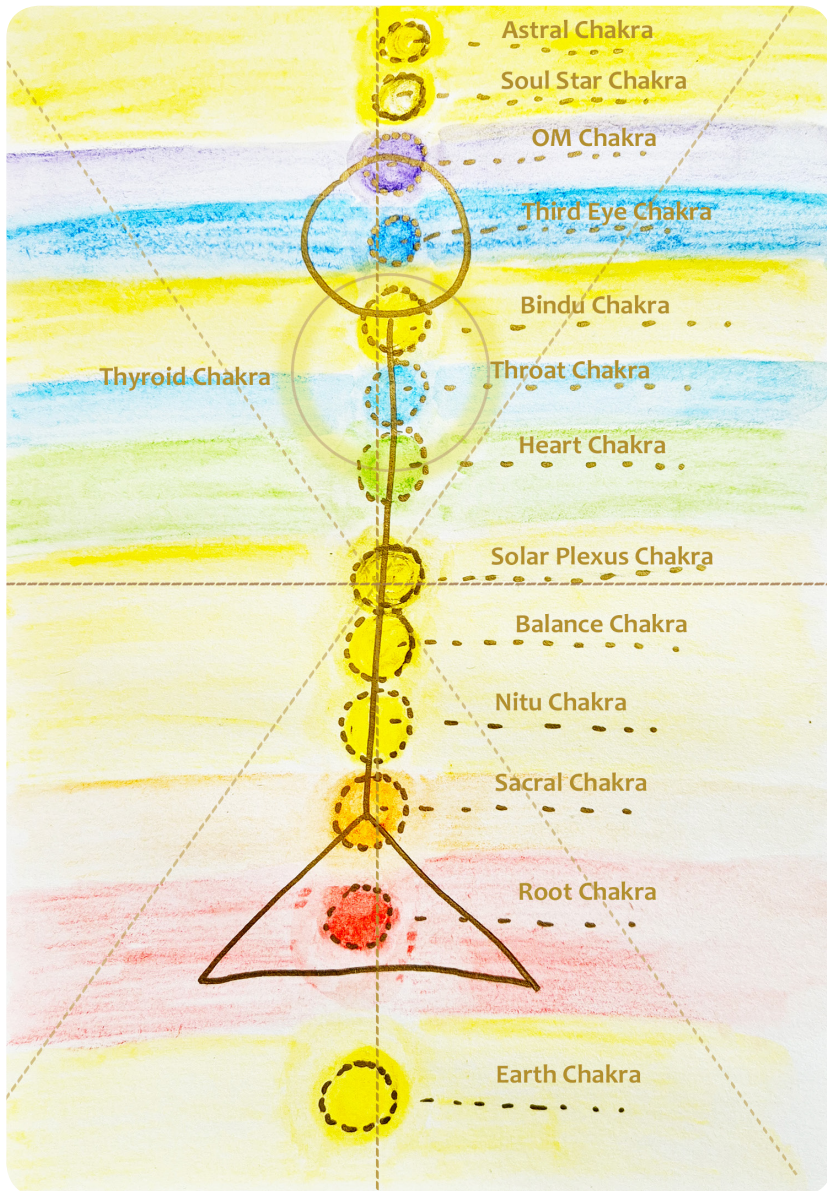 Astral Chakra
Soul Star Chakra
OM Chakra
Third Eye Chakra
Bindu Chakra
Thyroid Chakra
Throat Chakra
Heart Chakra
Solar Plexus Chakra
Balance Chakra
Nitu Chakra
Sacral Chakra
Root Chakra
Earth Chakra